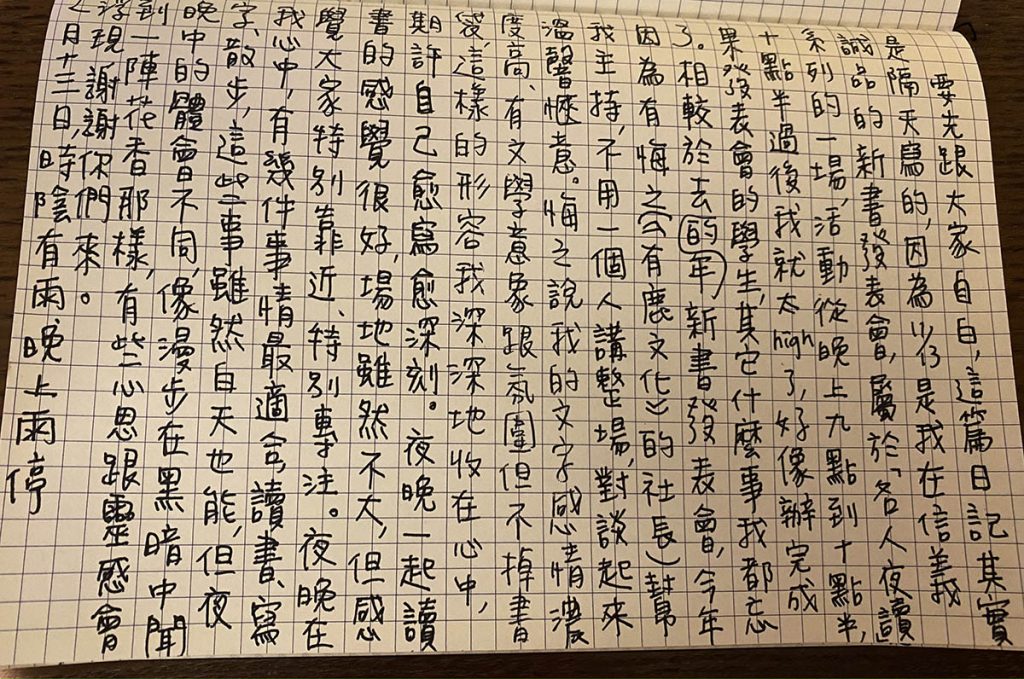 要先跟大家自白，這篇日記其實
是隔天寫的，因為11/13是我在信義
誠品的新書發表會，屬於「名人夜讀」
系列的一場，活動從晚上九點到十點半，
十點半過後我就太high了，好像辦完成
果發表會的學生，其它什麼事我都忘
了。相較於去的年新書發表會，今年
因為有悔之（《有鹿文化》的社長）幫
我主持，不用一個人講整場，對談起來
溫馨愜意。悔之說我的文字感情濃
度高、有文學意象跟氛圍但不掉書
袋，這樣的形容我深深地收在心中，
期許自己愈寫愈深刻。夜晚一起讀
書的感覺很好，場地雖然不大，但感
覺大家特別靠近、特別專注。夜晚在
我心中，有幾件事情最適合，讀書、寫
字、散步，這些事雖然白天也能，但夜
晚中的體會不同，像漫步在黑暗中聞
到一陣花香那樣，有些心思跟靈感會
浮現。謝謝你們來。
月十三日，時陰有雨，晚上雨停